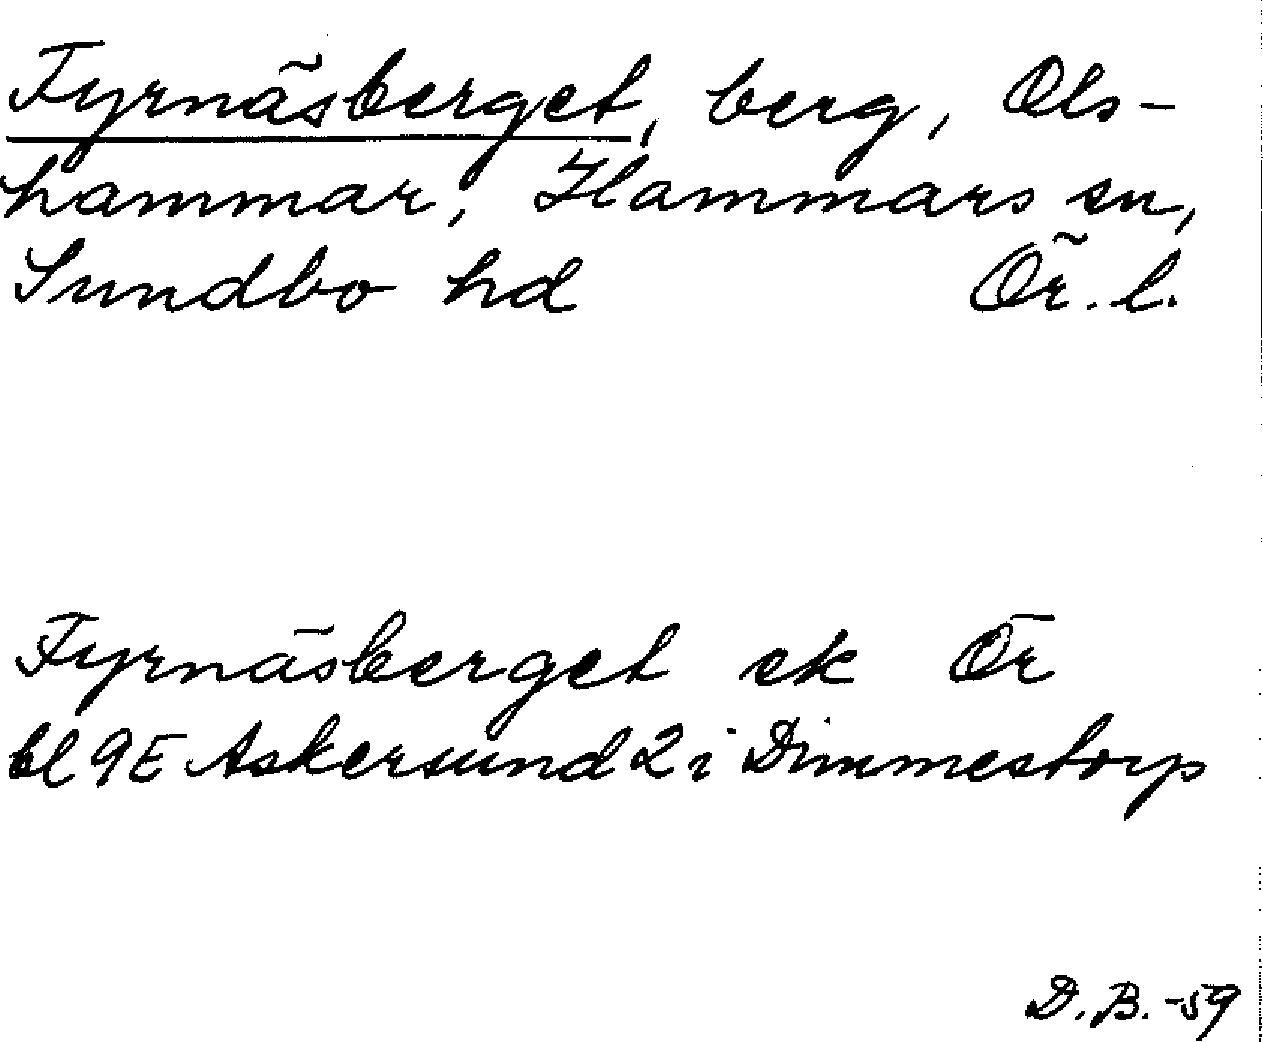 Fyrnäsberget, berg, Ols-
hammar, Hammars sn,
Sundbo hd Ör. l.
Fyrnäsberget ek Ör
bl 9E Askersund 2 i Dimmestorp
D.B. -59